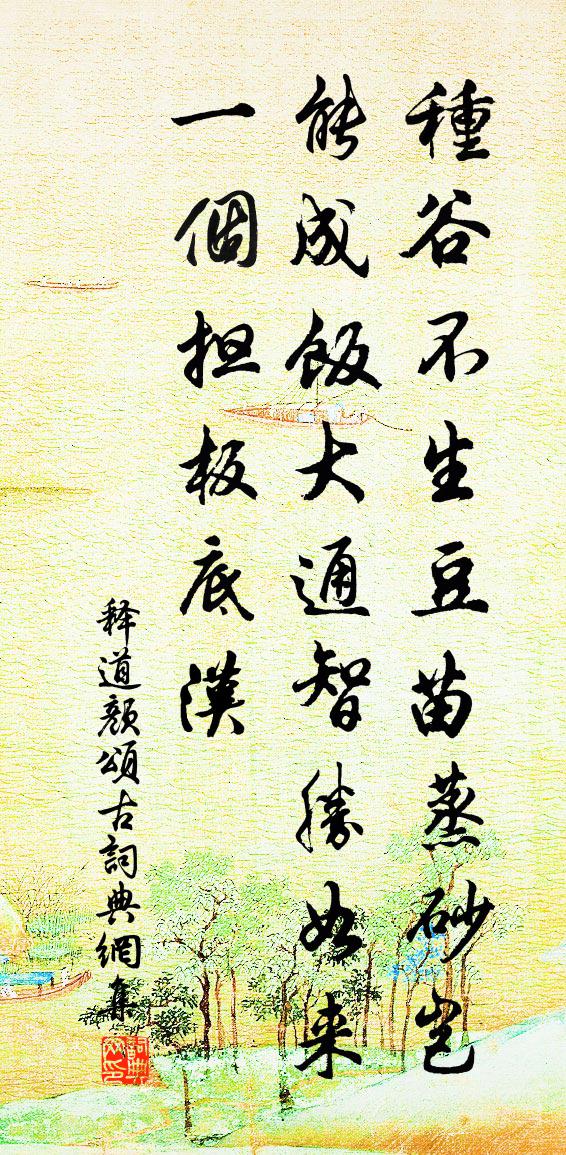 種谷不生豆苗蒸砂豈
能成飯大通智勝如来
一個担板底漢
释道顏頌古詞典網集